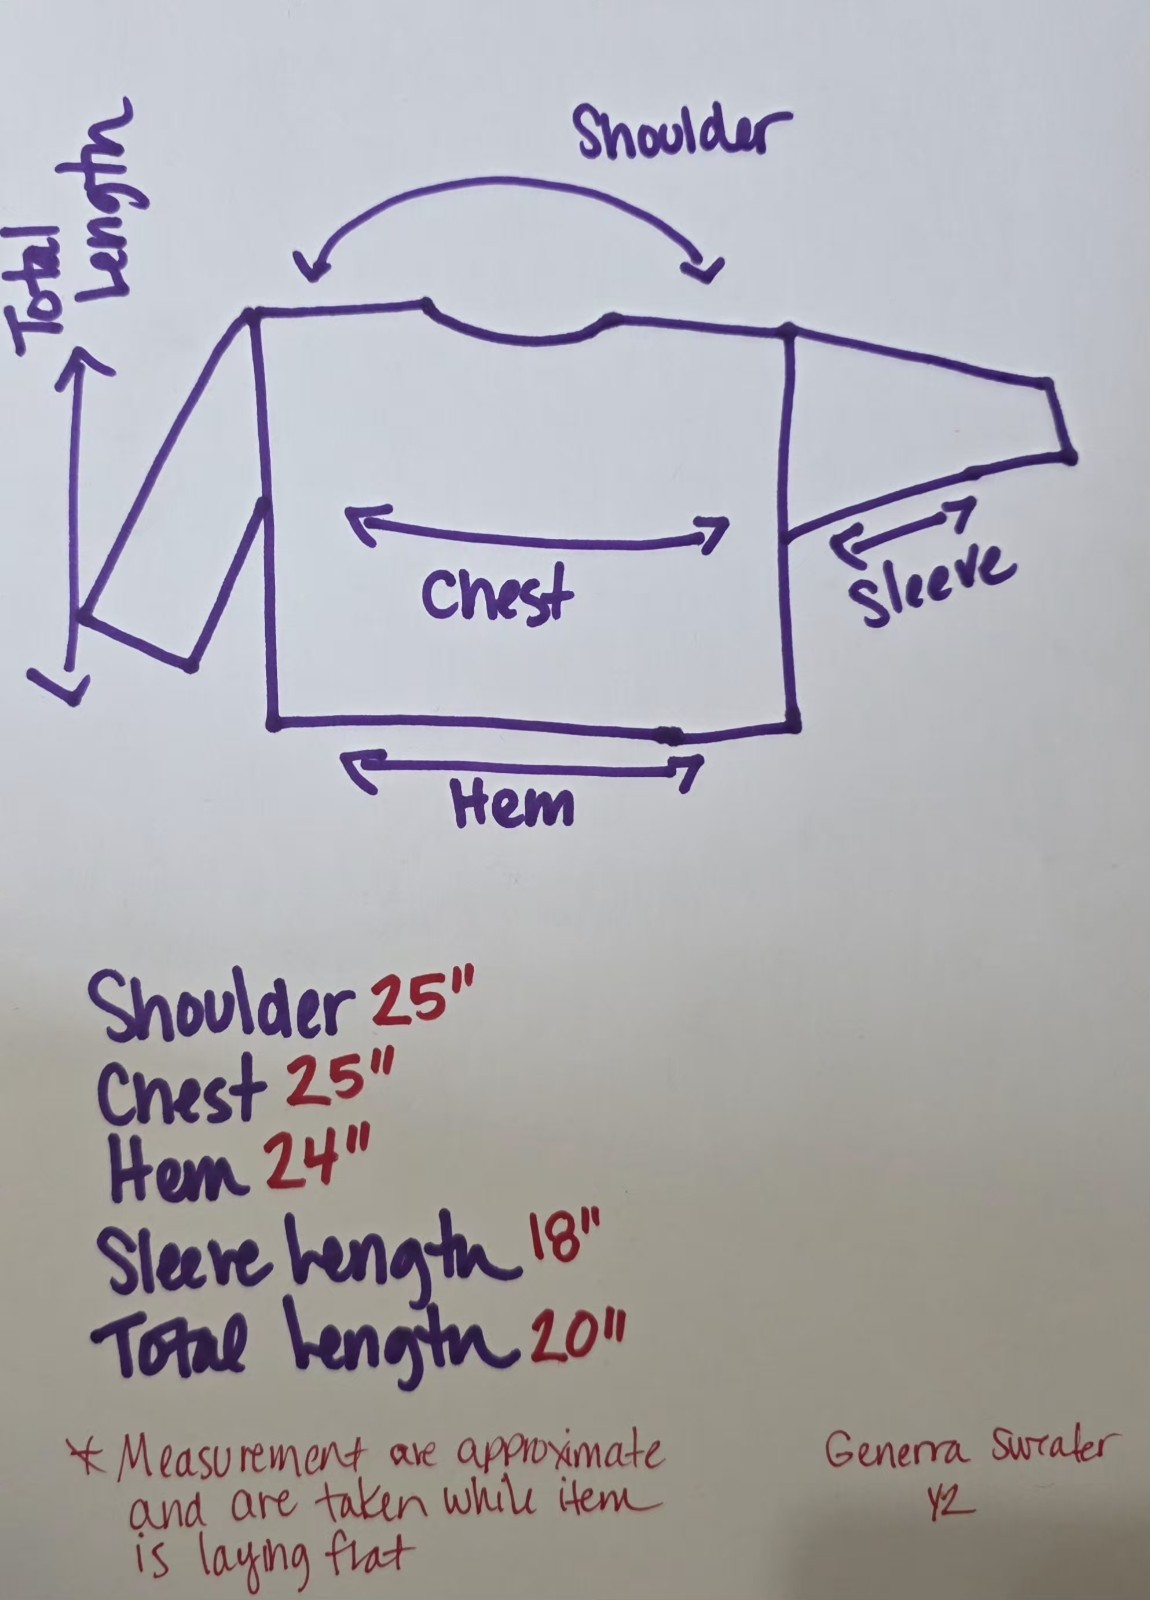 Shoulder
Total
Length
Chest
Sleeve
Hem
Shoulder 25"
Chest 25"
Hem 24"
Sleeve Length 18"
Total Length 20"
* Measurement are approximate
and are taken while item
is laying flat
Generra Sweater
Y2